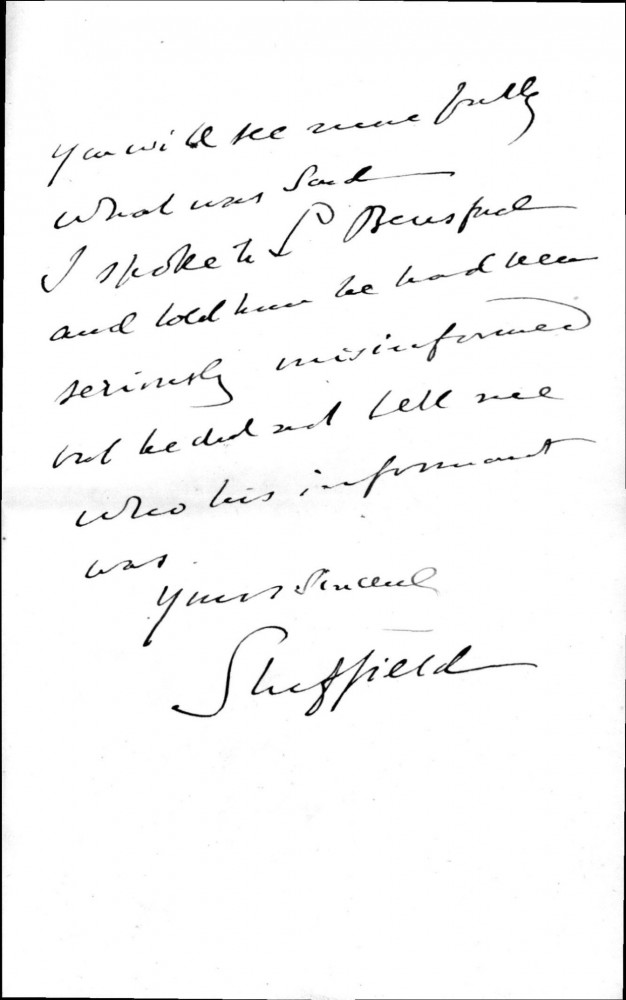 you will see more fully
what was said
I spoke to Ld Beresford
and told him he had been
seriously misinformed
but he did not tell me
who his informant
was.
Yours Sincerely
Sheffield